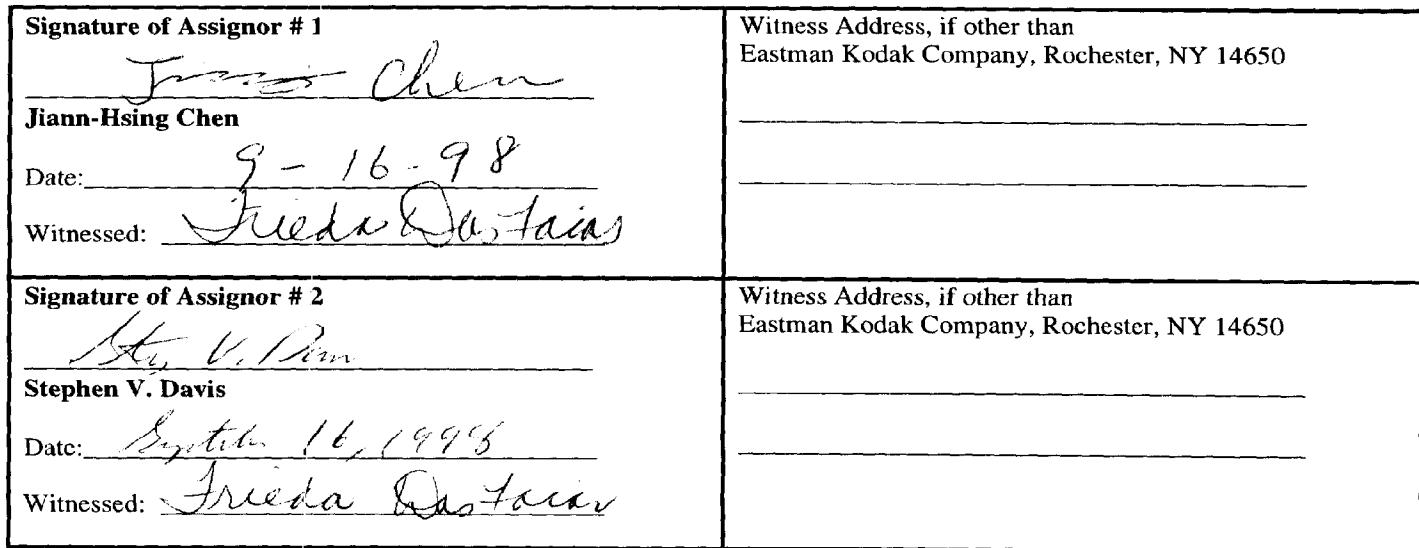 Signature of Assignor # 1
Chen
Jiann-Hsing Chen
Date: 9-16-98
Witnessed: Frieda
Witness Address, if other than
Eastman Kodak Company, Rochester, NY 14650
Signature of Assignor # 2
V.
Stephen V. Davis
Date: 16, 1998
Witnessed: Frieda
Witness Address, if other than
Eastman Kodak Company, Rochester, NY 14650